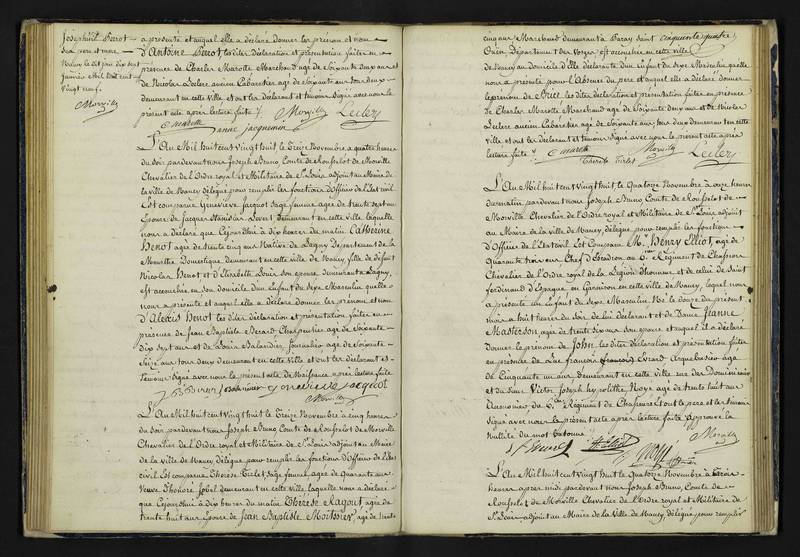 Josephine Perrot
Nancy le dix sept
Janvier Mil huit cent
vingt neuf.
Morville
a présenté et auquel elle a déclaré donner les prénom et nom
d'Antoine Perrot les dites déclaration et présentation faites en
présence de Charles Marotte Marchand agé de soixante deux ans et
de Nicolas Leclerc ancien Cabaretier agé de soixante un ans tous deux
demeurant en cette ville et ont les déclarant et témoins signé avec nous le
présent acte après lecture faite
C marotte Morville Leclerc
anne jacquemin
L'An Mil huit cent vingt huit le treize Novembre a quatre heures
du soir pardevant nous Joseph Bruno Comte de Rousselot de Morville
Chevalier de l'Ordre royal et Militaire de St Louis adjoint au Maire de
la ville de Nancy délégué pour remplir les fonctions d'Officier de l'état civil
Est comparue Geneviève Jacquot Sage femme agée de trente sept ans
Epouse de Jacques Stanislas demeurant en cette ville laquelle
nous a déclaré que Cejourd'hui à dix heures du matin Catherine
Henot agée de trente cinq ans Native de Lagny Département de la
Meurthe Domestique demeurant en cette ville de Nancy, fille de défunt
Nicolas Henot et d'Elisabeth Louis son épouse demeurant a Lagny,
est accouchée en son domicile d'un Enfant du sexe Masculin quelle
nous a présenté et auquel elle a déclaré donner les prénom et nom
d'Alexis Henot les dites déclaration et présentation faites en
présence de Jean Baptiste Berard Charpentier agé de soixante
dix sept ans et de Louis Salandier Journalier agé de soixante
Seize ans tous deux demeurant en cette ville et ont les déclarant et
témoins signé avec nous le présent acte de Naissance après lecture faite
genevieve jacquot
Morville
L'An Mil huit cent vingt huit le treize Novembre à cinq heures
du soir pardevant nous Joseph Bruno Comte de Rousselot de Morville
Chevalier de l'Ordre royal et Militaire de St Louis adjoint au Maire
de la ville de Nancy délégué pour remplir les fonctions d'Officier de l'état
civil Est comparue Thérèse Tirlet Sage femme, agée de quarante ans
Veuve d'honoré Jobel demeurant en cette ville laquelle nous a déclaré
que Cejourd'hui à dix heures du matin Thérèse Ragout agée de
trente huit ans Epouse de Jean Baptiste Moitssier, agé de trente
cinq ans Marchand demeurant a Paray Saint cinquante quatre
Ouen Département des Vosges est accouchée en cette ville
de Nancy au domicile d'elle déclarante d'un Enfant du sexe Masculin quelle
nous a présenté pour l'absence du père et auquel elle a déclaré donner
le prénom de les dites déclaration et présentation faites en présence
de Charles Marotte Marchand agé de soixante deux ans et de Nicolas
Leclerc ancien Cabaretier agé de soixante un ans tous deux demeurant en cette
ville et ont les déclarant et témoins signé avec nous le présent acte après
lecture faite C marotte Morville
Therese Tirlet Leclerc
L'An Mil huit cent vingt huit le Quatorze Novembre à onze heures
du matin, pardevant nous Joseph Bruno, Comte de Rousselot de
Morville, Chevalier de l'Ordre royal et Militaire de St Louis adjoint
au Maire de la ville de Nancy délégué pour remplir les fonctions
d'Officier de l'Etat civil Est Comparu Mr Henry Elliot, agé de
quarante trois ans Chef d'Escadron au 6ème Régiment de Chasseurs
Chevalier de l'Ordre royal de la Légion d'honneur et de celui de Saint
ferdinand d'Espagne en Garnison en cette ville de Nancy, lequel nous
a présenté un Enfant du sexe Masculin Né le douze du présent
mois a huit heures du soir de lui déclarant et de Dame Jeanne
Masterson agée de trente six ans son épouse et auquel il a déclaré
donner le prénom de John, les dites déclaration et présentation faites
en présence de Luc françois françois Erard Arquebusier agé
de Cinquante un ans demeurant en cette ville rue des Dominicains
et du sieur Victor Joseph hyppolithe Noye agé de trente huit ans
Régiment de Chasseurs et ont le père et les témoins
signé avec nous le présent acte après lecture faite Approuvé la
nullité du mot
Morville
L'An Mil huit cent vingt huit le Quatorze Novembre à trois
heures après midi pardevant nous Joseph Bruno, Comte de
Rousselot de Morville Chevalier de l'Ordre royal et Militaire de
St Louis adjoint au Maire de la Ville de Nancy, délégué pour remplir